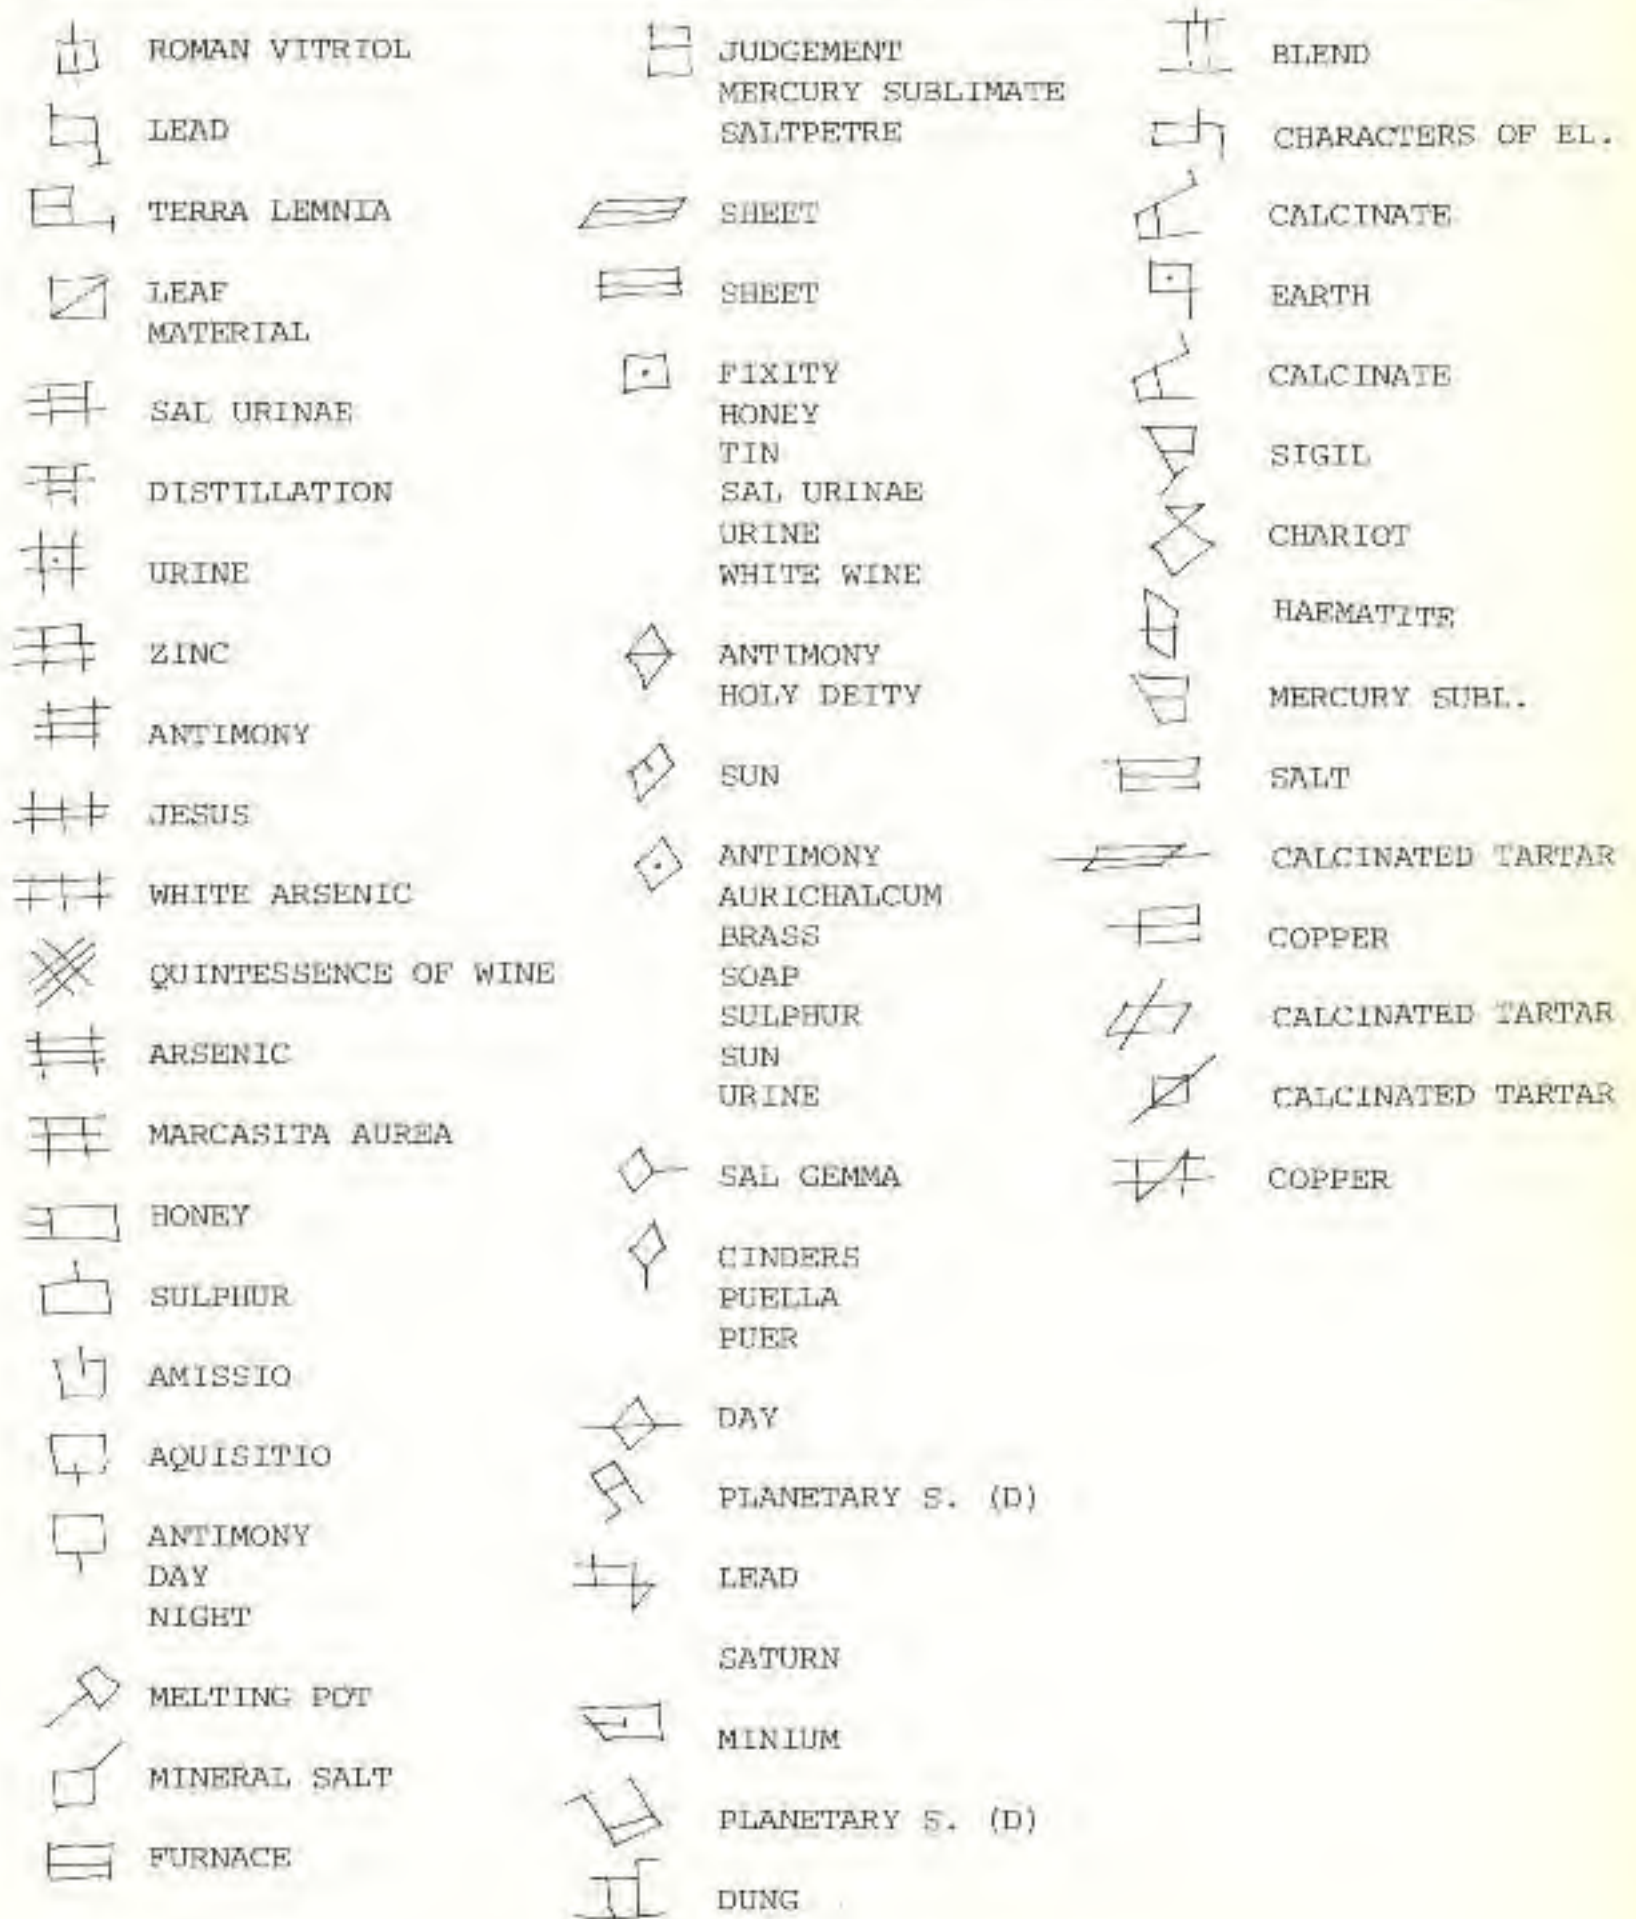 ROMAN VITRIOL
LEAD
TERRA LEMNIA
LEAF
MATERIAL
SAL URINAE
DISTILLATION
URINE
ZINC
ANTIMONY
JESUS
WHITE ARSENIC
QUINTESSENCE OF WINE
ARSENIC
MARCASITA AUREA
HONEY
SULPHUR
AMISSIO
AQUISITIO
ANTIMONY
DAY
NIGHT
MELTING POT
MINERAL SALT
FURNACE
JUDGEMENT
MERCURY SUBLIMATE
SALTPETRE
SHEET
SHEET
FIXITY
HONEY
TIN
SAL URINAE
URINE
WHITE WINE
ANTIMONY
HOLY DEITY
SUN
ANTIMONY
AURICHALCUM
BRASS
SOAP
SULPHUR
SUN
URINE
SAL GEMMA
CINDERS
PUELLA
PUER
DAY
PLANETARY S. (D)
LEAD
SATURN
MINIUM
PLANETARY S. (D)
DUNG
BLEND
CHARACTERS OF EL.
CALCINATE
EARTH
CALCINATE
SIGIL
CHARIOT
HAEMATITE
MERCURY SUBL.
SALT
CALCINATED TARTAR
COPPER
CALCINATED TARTAR
CALCINATED TARTAR
COPPER